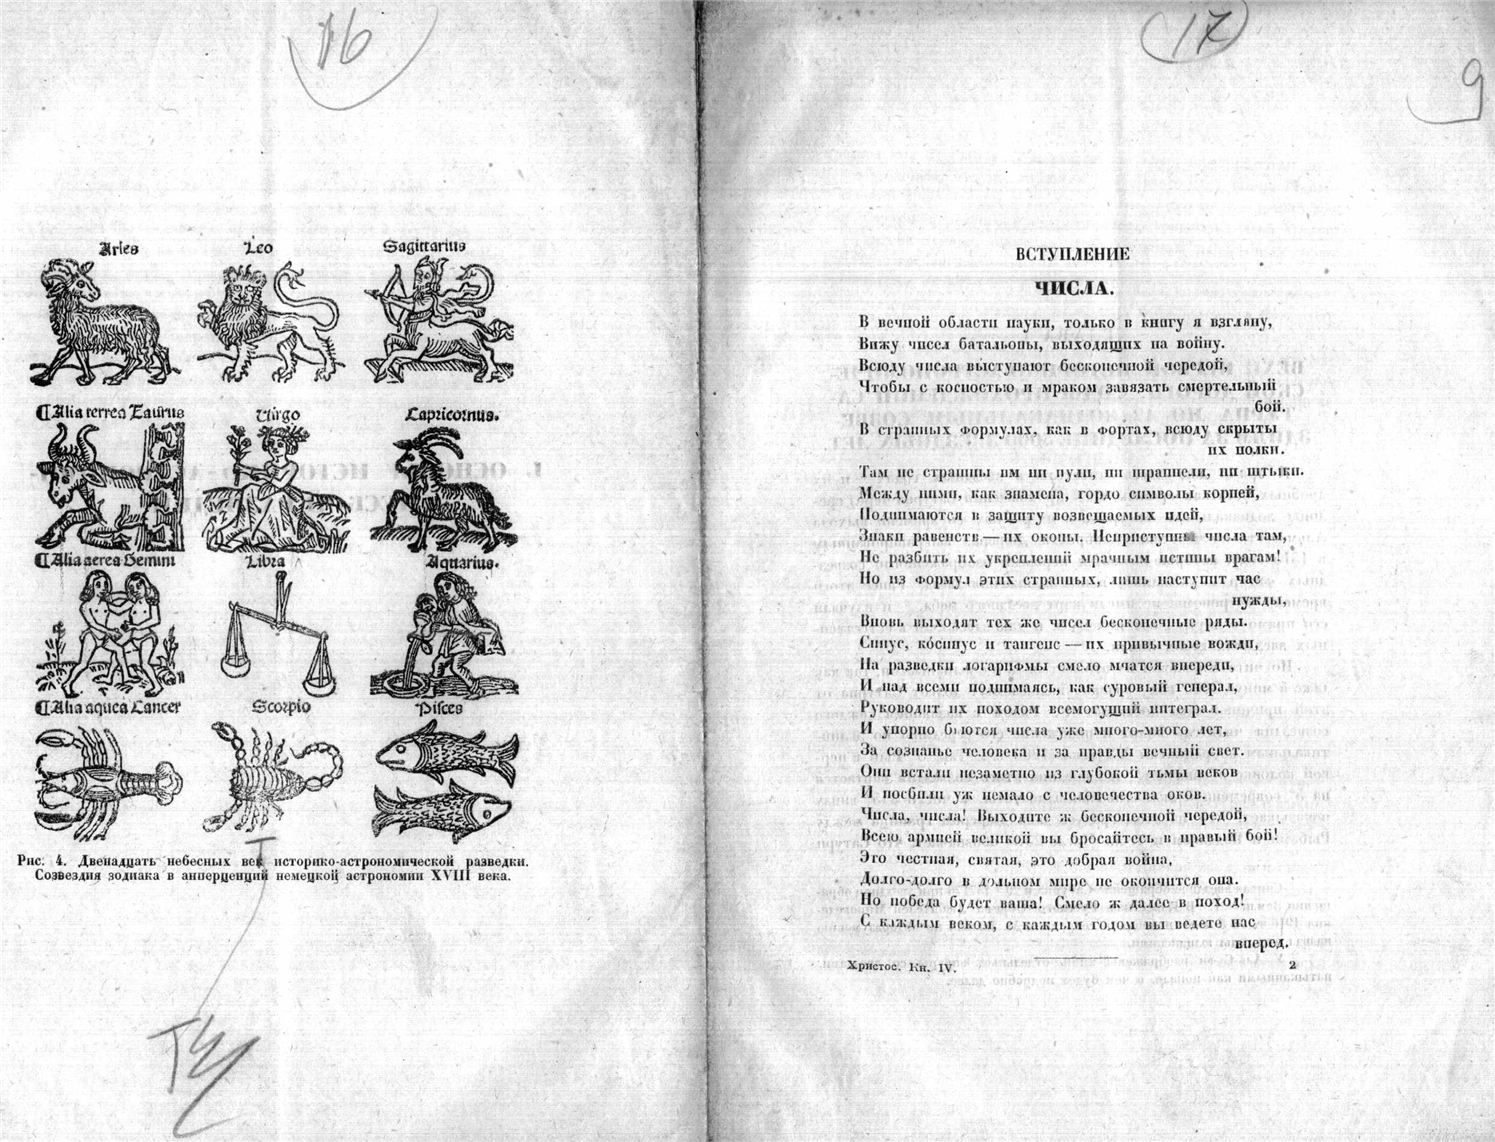 16
Aries Leo Sagittarius
Alia terrea Taurus Virgo Capricornus.
Alia aerea Gemini Libra Aquarius.
Alia aquea Cancer Scorpio Pisces
Рис. 4. Двенадцать небесных век историко-астрономической разведки.
Созвездия зодиака в апперцепции немецкой астрономии XVIII века.
17
9
ВСТУПЛЕНИЕ
ЧИСЛА.
В вечной области науки, только в книгу я взгляну,
Вижу чисел батальоны, выходящих на войну.
Всюду числа выступают бесконечной чередой,
Чтобы с косностью и мраком завязать смертельный
бой.
В странных формулах, как в фортах, всюду скрыты
их полки.
Там не страшны им ни пули, ни шрапнели, ни штыки.
Между ними, как знамена, гордо символы корней,
Поднимаются в защиту возвещаемых идей,
Знаки равенств — их окопы. Неприступны числа там,
Не разбить их укреплений мрачным истины врагам!
Но из формул этих странных, лишь наступит час
нужды,
Вновь выходят тех же чисел бесконечные ряды.
Синус, ко́синус и тангенс — их привычные вожди,
На разведки логарифмы смело мчатся впереди,
И над всеми поднимаясь, как суровый генерал,
Руководит их походом всемогущий интеграл.
И упорно бьются числа уже много-много лет,
За сознанье человека и за правды вечный свет.
Они встали незаметно из глубокой тьмы веков
И посбили уж немало с человечества оков.
Числа, числа! Выходите ж бесконечной чередой,
Всею армией великой вы бросайтесь в правый бой!
Это честная, святая, это добрая война,
Долго-долго в дольном мире не окончится она.
Но победа будет ваша! Смело ж далее в поход!
С каждым веком, с каждым годом вы ведете нас
вперед.
Христос. Кн. IV. 2